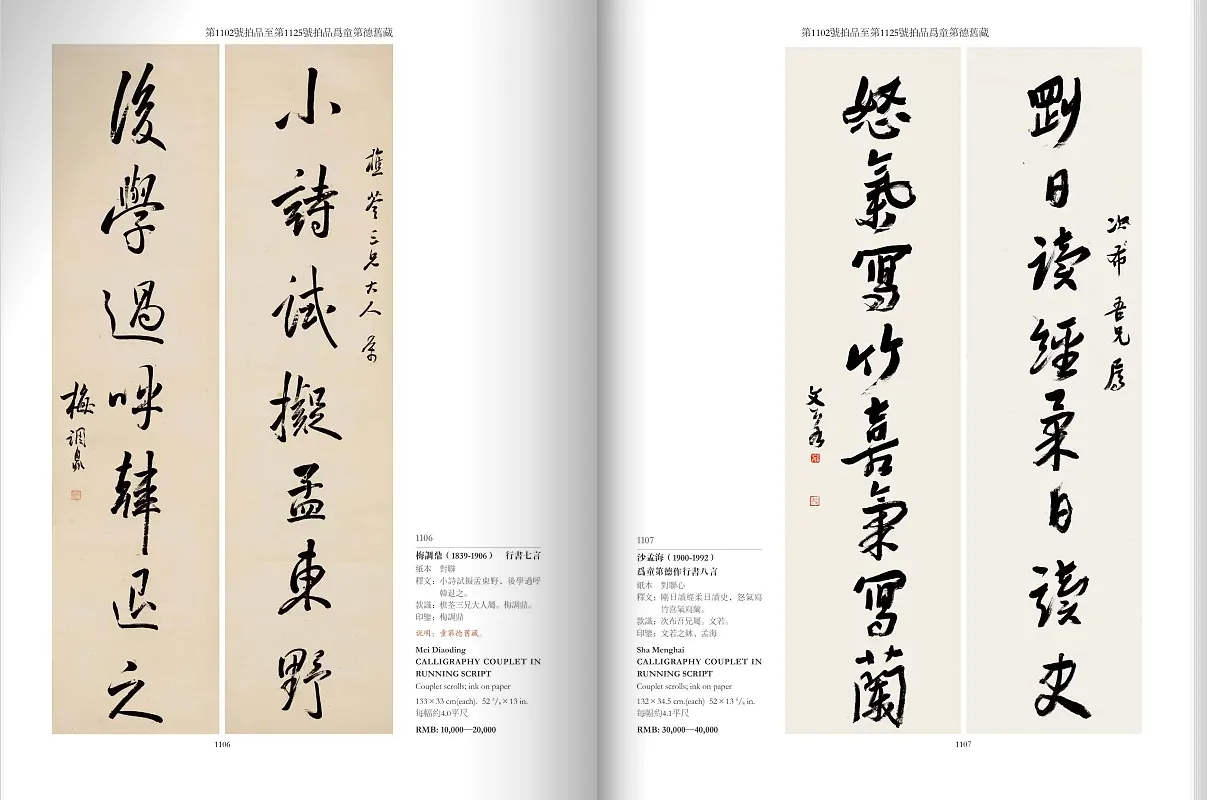 第1102號拍品至第1125號拍品爲童第德舊藏
小詩試擬孟東野
樵荃三兄大人屬
後學過呼韓退之
梅調鼎
1106
梅調鼎（1839-1906） 行書七言
紙本 對聯
釋文：小詩試擬孟東野，後學過呼
韓退之。
款識：樵荃三兄大人屬。梅調鼎。
印鑒：梅調鼎
说明：童第德舊藏。
Mei Diaoding
CALLIGRAPHY COUPLET IN
RUNNING SCRIPT
Couplet scrolls; ink on paper
133×33 cm(each). 52 3/8×13 in.
每幅約4.0平尺
RMB: 10,000—20,000
1106
第1102號拍品至第1125號拍品爲童第德舊藏
剛日讀經柔日讀史
次布吾兄屬
怒氣寫竹喜氣寫蘭
文若
1107
沙孟海（1900-1992）
爲童第德作行書八言
紙本 對聯心
釋文：剛日讀經柔日讀史，怒氣寫
竹喜氣寫蘭。
款識：次布吾兄屬。文若。
印鑒：文若之鉢、孟海
Sha Menghai
CALLIGRAPHY COUPLET IN
RUNNING SCRIPT
Couplet scrolls; ink on paper
132×34.5 cm.(each) 52×13 5/8 in.
每幅約4.1平尺
RMB: 30,000—40,000
1107